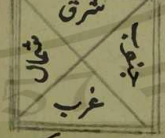 شرق
شمال
جنوب
غرب